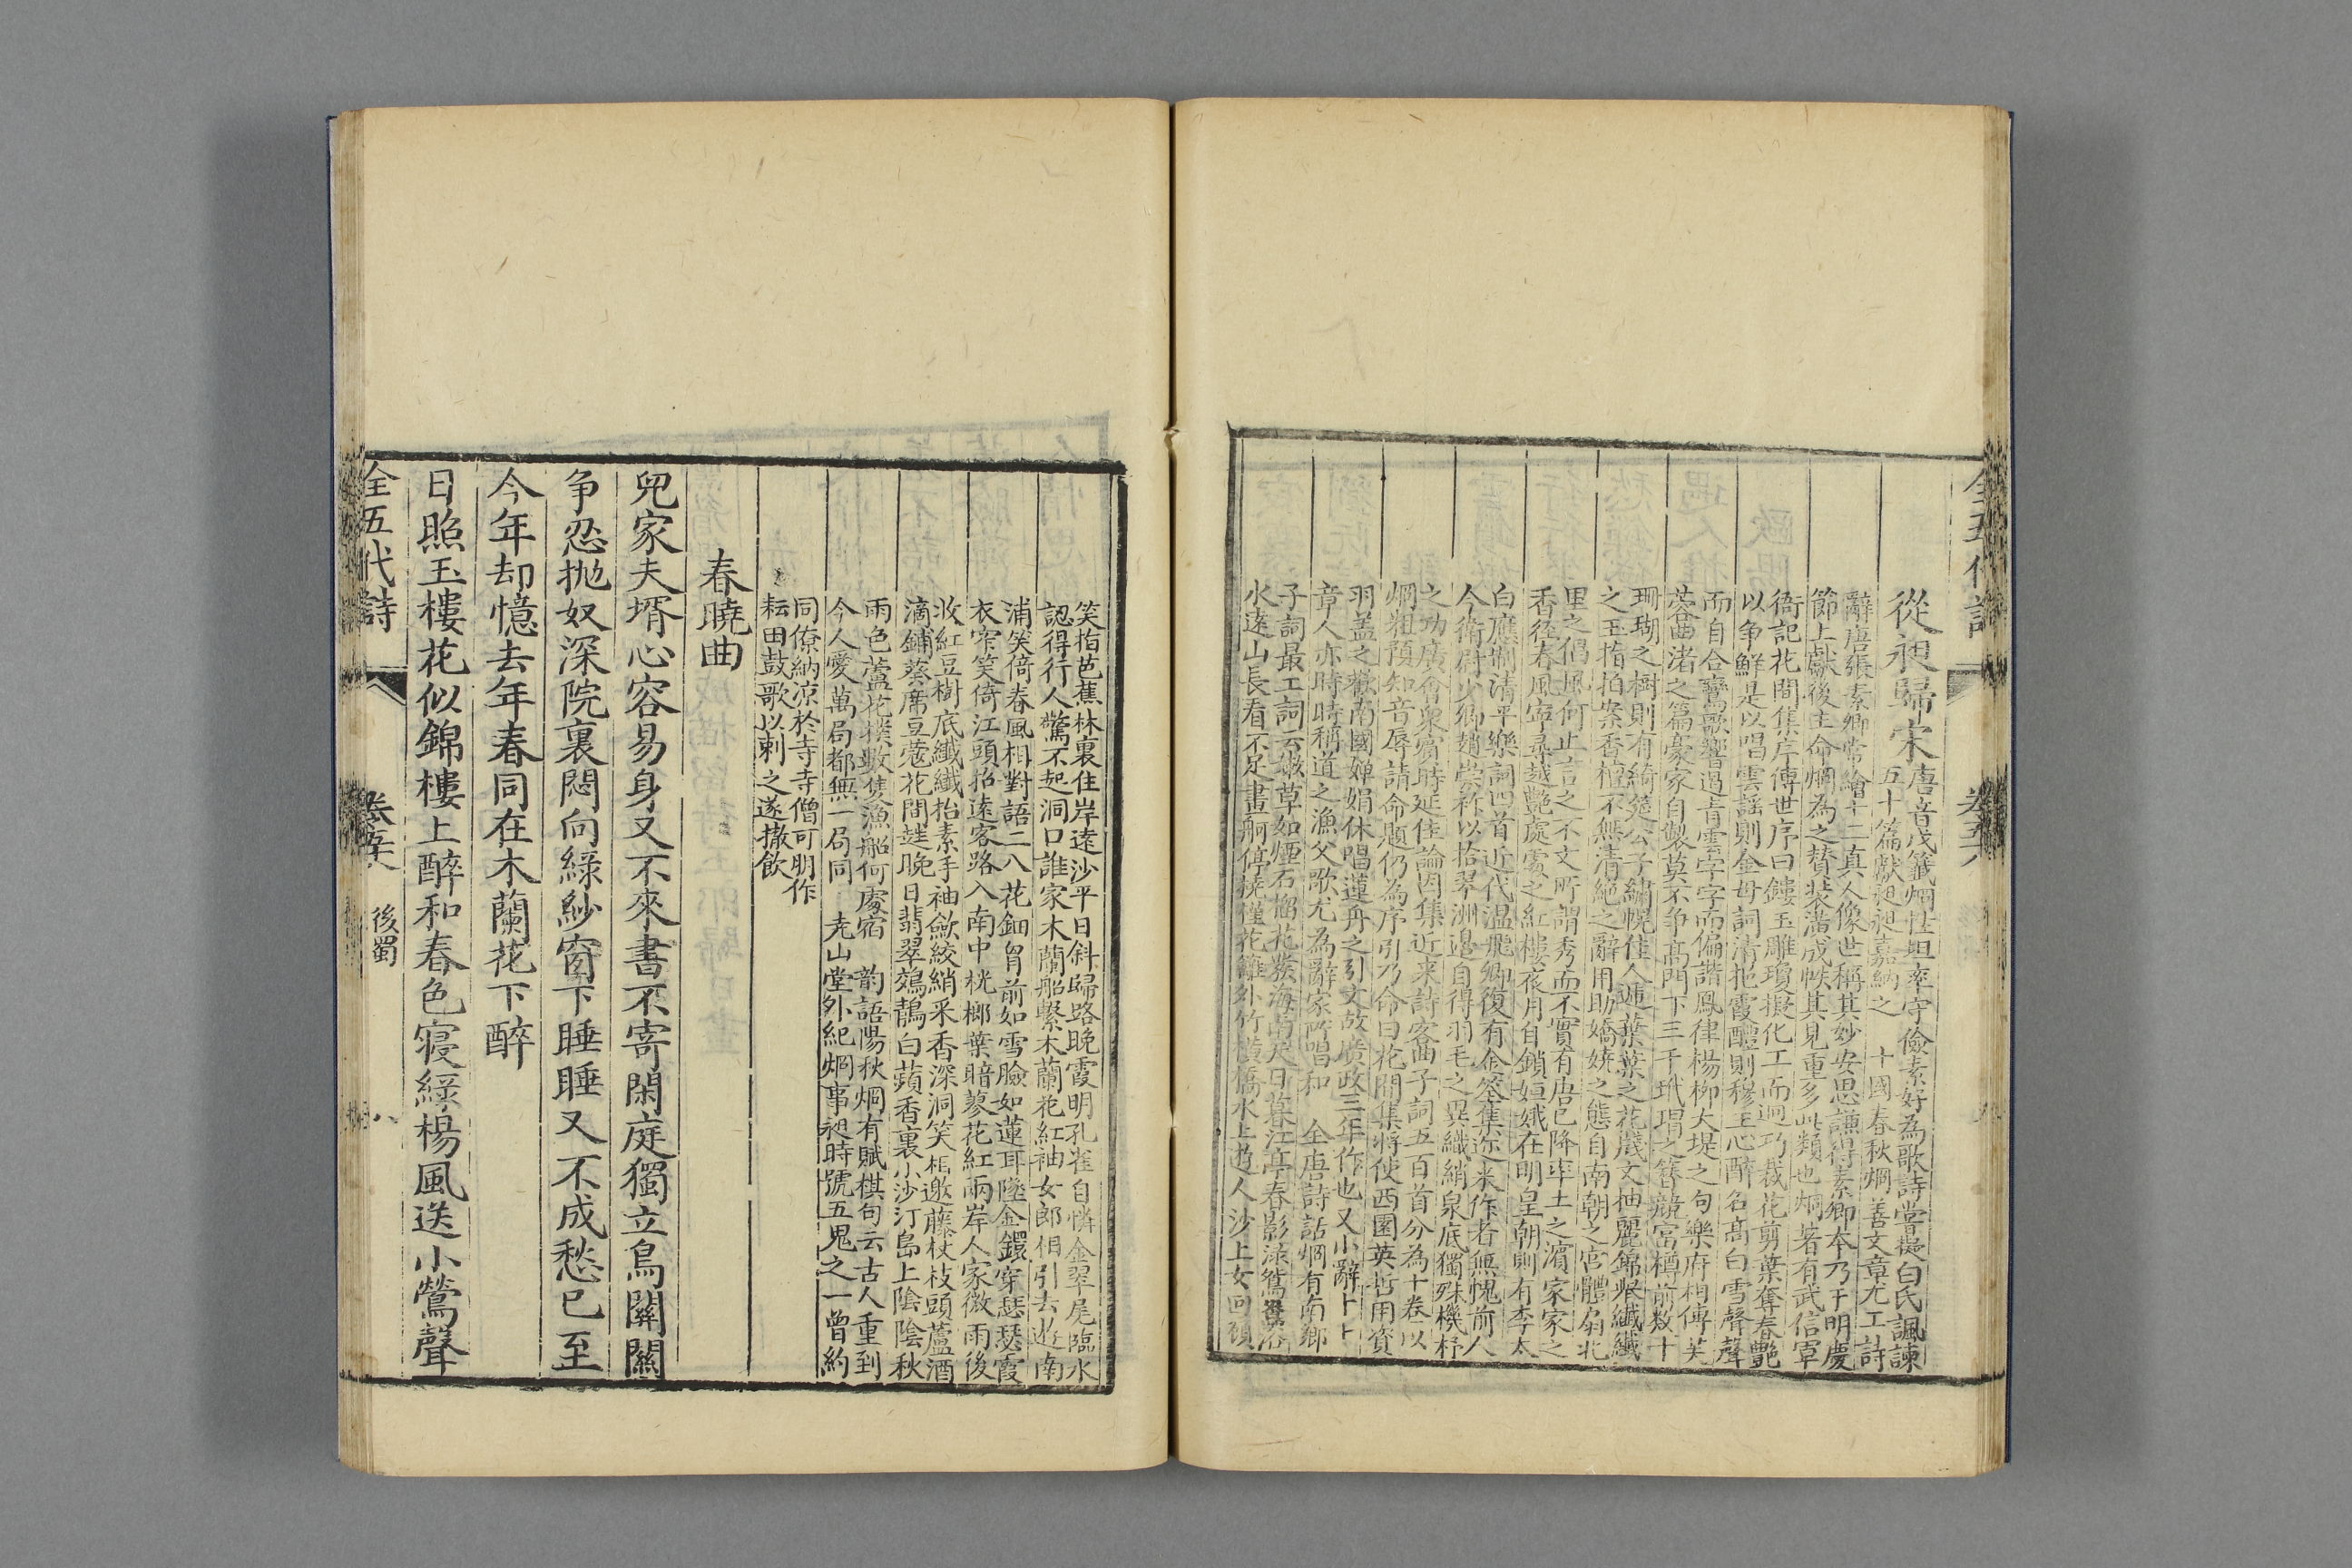 從昶歸宋
唐音戊籤烱性坦率守儉素好為歌詩嘗擬白氏諷諫
五十篇獻昶昶嘉納之　十國春秋烱善文章尤工詩
辭唐張素卿常繪十二真人像世稱其妙安思謙得素卿本乃于明慶
節上獻後主命烱為之贊裝潢成帙其見重多此類也烱著有武信軍
衙記花間集序傳世序曰鏤玉雕瓊擬化工而迥巧裁花剪葉奪春艷
以争鮮是以唱雲謠則金母詞清挹霞醴則穆王心醉名髙白雪聲聲
而自合鸞歌響遏青雲字字而偏諧鳳律楊柳大堤之句樂府相傳芙
蓉曲渚之篇豪家自製莫不争髙門下三千玳瑁之簪競富樽前数十
珊瑚之樹則有綺筵公子繡幌佳人遞葉葉之花牋文抽麗錦擧纖纖
之玉指拍案香檀不無清絕之辭用助嬌嬈之態自南朝之宮體扇北
里之倡風何止言之不文所謂秀而不實有唐已降率土之濱家家之
香徑春風寧尋越艷處處之紅樓夜月自鎖姮娥在明皇朝則有李太
白應制清平樂詞四首近代温飛卿復有金荃集迩来作者無愧前人
今衛尉少卿趙崇祚以拾翠洲邊自得羽毛之異織綃泉底獨殊機杼
之功廣會衆賓時延佳論因集近来詩客曲子詞五百首分為十卷以
烱粗預知音辱請命題仍為序引乃命曰花間集將使西園英哲用資
羽盖之歡南國嬋娟休唱蓮舟之引文故廣政三年作也又小辭十七
章人亦時時稱道之漁父歌尤為辭家所唱和　全唐詩話烱有南鄉
子詞最工詞云嫩草如煙石榴花發海南天日暮江亭春影渌鴛鴦浴
水遠山長看不足畫舸停橈槿花籬外竹橫橋水上遊人沙上女回顧
笑指芭蕉林裏住岸遠沙平日斜歸路晚霞明孔雀自憐金翠尾臨水
認得行人驚不起洞口誰家木蘭船繫木蘭花紅袖女郎相引去遊南
浦笑倚春風相對語二八花鈿胷前如雪臉如蓮耳墜金鐶穿瑟瑟霞
衣窄笑倚江頭招遠客路入南中桄榔葉暗蓼花紅兩岸人家微雨後
收紅豆樹底纖纖抬素手袖歛鮫綃采香深洞笑相邀藤杖枝頭蘆酒
滴鋪葵席豆蔻花間趖晚日翡翠鵁鶄白蘋香裏小沙汀島上陰陰秋
雨色蘆花撲數隻漁船何處宿　韵語陽秋烱有賦棋句云古人重到
今人愛萬局都無一局同　尭山堂外紀烱事昶時號五鬼之一曾約
同僚納凉於寺寺僧可朋作
耘田鼓歌以刺之遂撤飲
春曉曲
兒家夫壻心容易身又不來書不寄閑庭獨立鳥關關
争忍抛奴深院裏悶向緑紗窗下睡睡又不成愁已至
今年却憶去年春同在木蘭花下醉
日照玉樓花似錦樓上醉和春色寢緑楊風送小鶯聲
全五代詩　後蜀　八